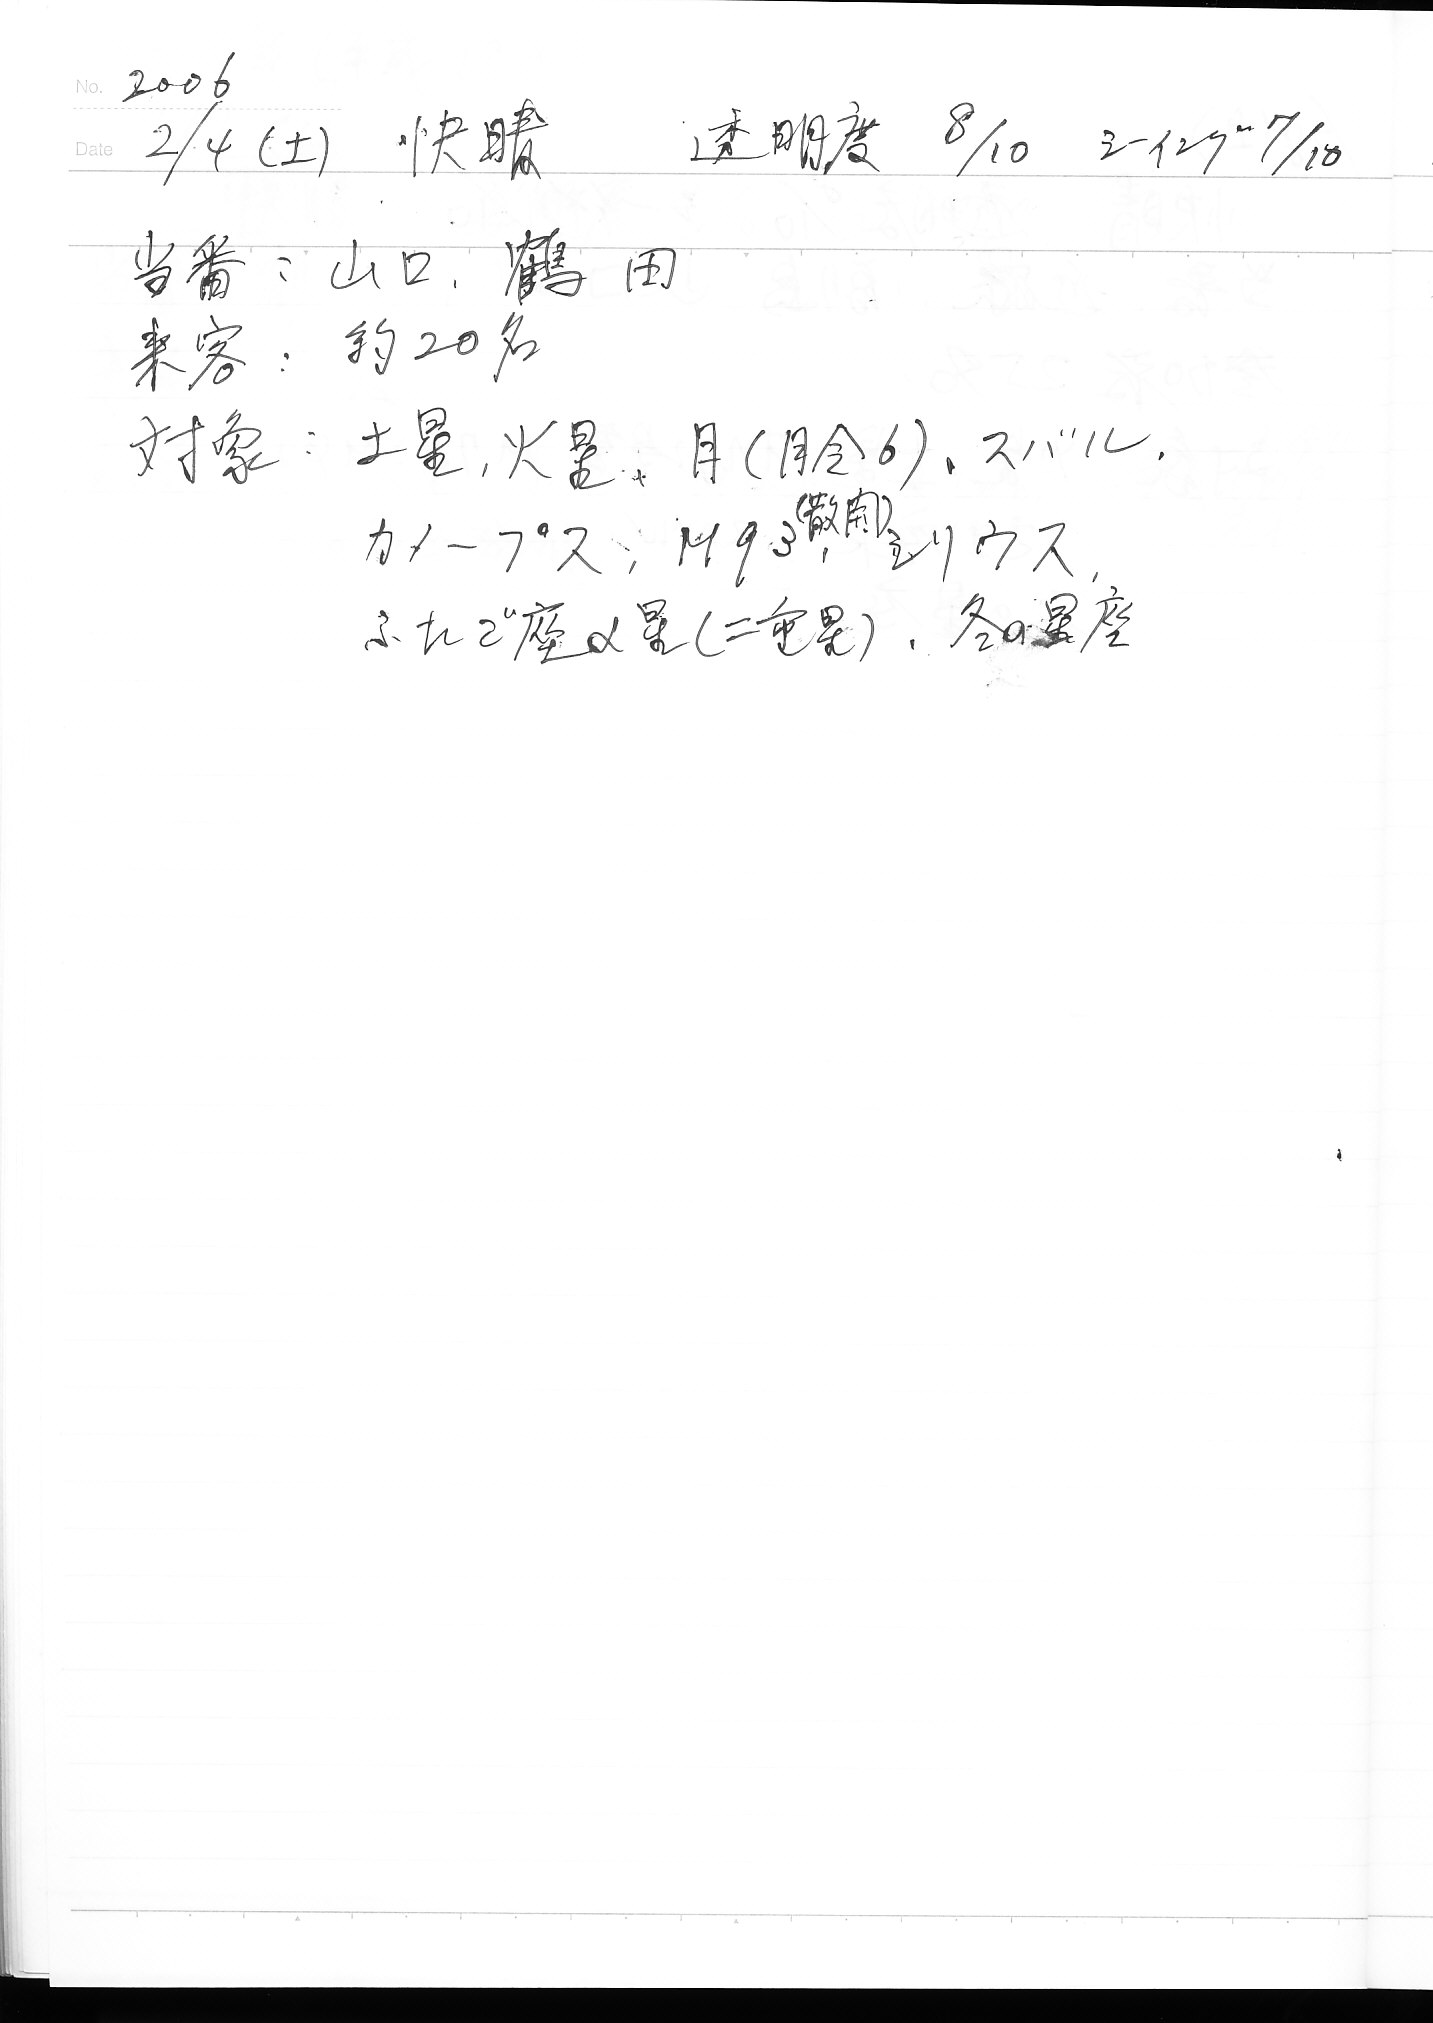 No. 2006
Date 2/4 (土) 快晴 透明度 8/10 シーイング 7/10
当番: 山口、鶴田
来客: 約20名
対象: 土星、火星、月(月令6)、スバル、
カノープス、M93(散開)、シリウス、
ふたご座α星(二重星)、冬の星座